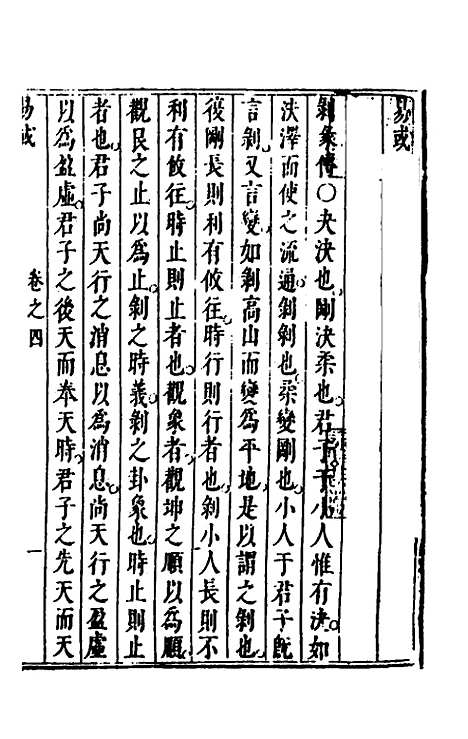 易或
剝彖傳○夬決也剛決柔也君子于小人惟有決如
決澤而使之流通剝剝也柔變剛也小人于君子旣
言剝又言變如剝高山而變爲平地是以謂之剝也
復剛長則利有攸往時行則行者也剝小人長則不
利有攸往時止則止者也觀象者觀坤之順以爲順
觀艮之止以爲止剝之時義剝之卦象也時止則止
者也君子尚天行之消息以爲消息尚天行之盈虛
以爲盈虛君子之後天而奉天時君子之先天而天
易或
卷之四
一